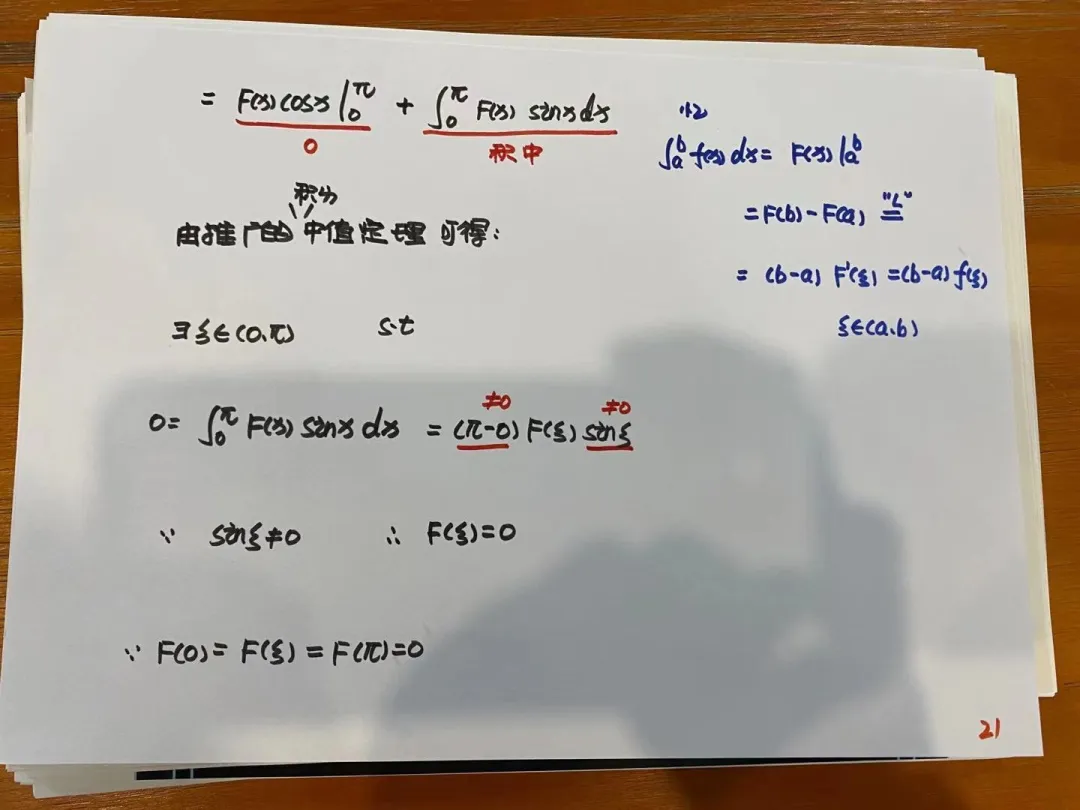 = F(x)cosx |₀^π + ∫₀^π F(x) sinx dx
0 积中
积分
由推广的中值定理可得：
∃ξ∈(0,π) s·t
0 = ∫₀^π F(x) sinx dx = (π-0) F(ξ) sinξ
≠0 ≠0
∵ sinξ≠0 ∴ F(ξ)=0
∵ F(0) = F(ξ) = F(π) = 0
∫ₐᵇ f(x) dx = F(x) |ₐᵇ
= F(b) - F(a) "L" =
= (b-a) F'(ξ) = (b-a) f(ξ)
ξ∈(a,b)
21